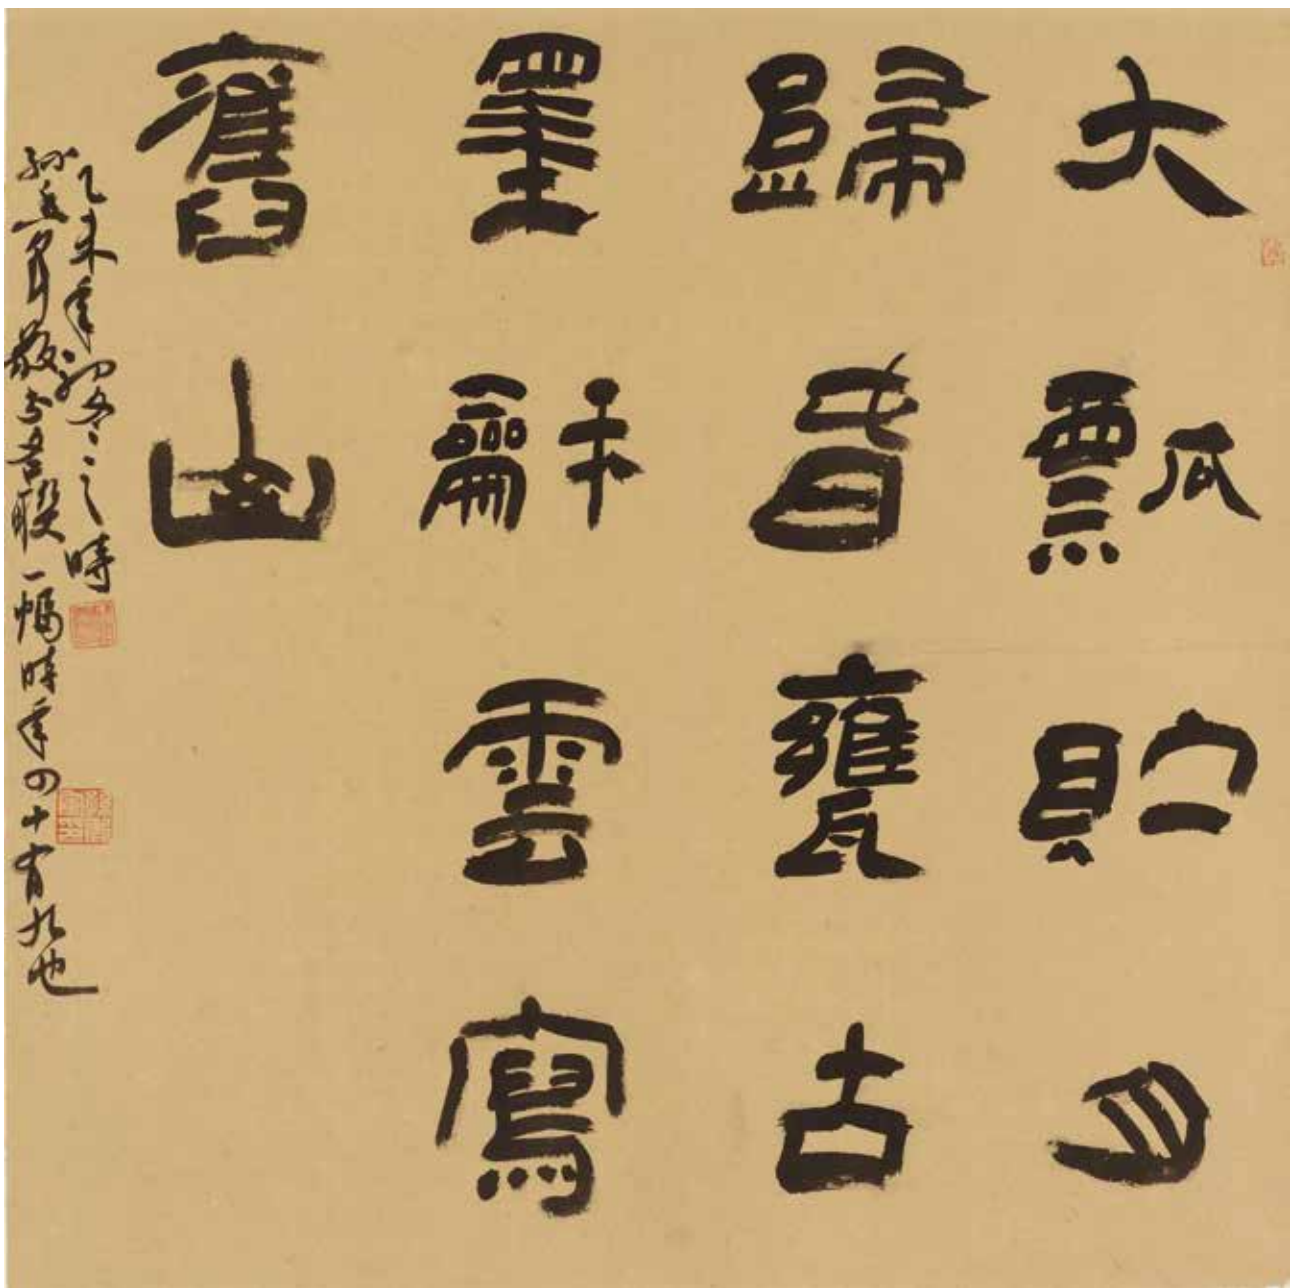 大瓢貯月
歸旾甕古
墨龢雲寫
舊山
乙未年初冬之時
敬書聯一幅時年四十有九也